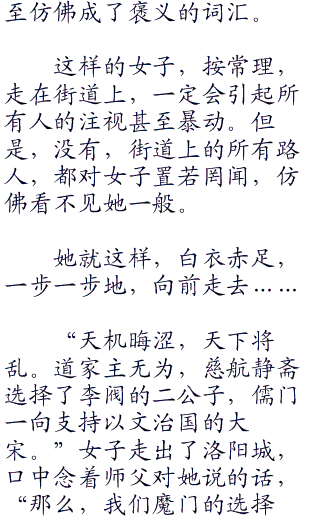 至仿佛成了褒义的词汇。
这样的女子，按常理，
走在街道上，一定会引起所
有人的注视甚至暴动。但
是，没有，街道上的所有路
人，都对女子置若罔闻，仿
佛看不见她一般。
她就这样，白衣赤足，
一步一步地，向前走去……
“天机晦涩，天下将
乱。道家主无为，慈航静斋
选择了李阀的二公子，儒门
一向支持以文治国的大
宋。”女子走出了洛阳城，
口中念着师父对她说的话，
“那么，我们魔门的选择